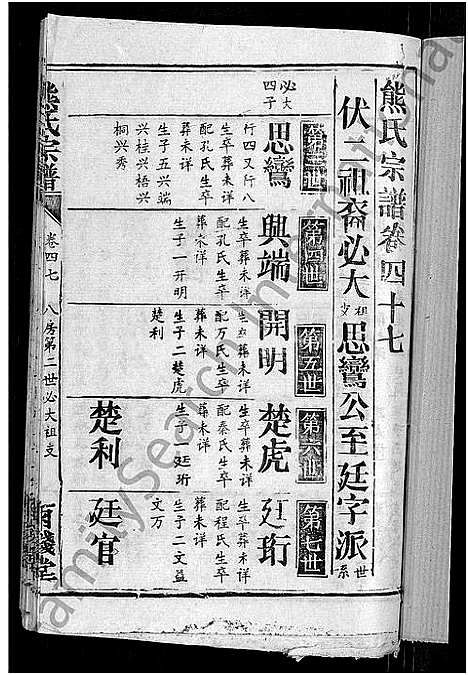 熊氏宗譜卷四十七
伏二祖裔必大祖支思鸞公至廷字派世系
第三世
第四世
第五世
第六世
第七世
必大四子
思鸞
行四又行八
生卒葬未詳
配孔氏生卒
葬未詳
生子五興端
兴桂兴梧兴
桐兴秀
興端
生卒葬未詳
配孔氏生卒
葬未详
生子一开明
開明
生卒葬未詳
配万氏生卒
葬未详
生子二楚虎
楚利
楚虎
生卒葬未詳
配秦氏生卒
葬未详
生子一廷珩
楚利
廷珩
生卒葬未詳
配程氏生卒
葬未详
生子二文益
文万
廷官
熊氏宗譜
卷四七
八房第二世必大祖支
FamilySearch International